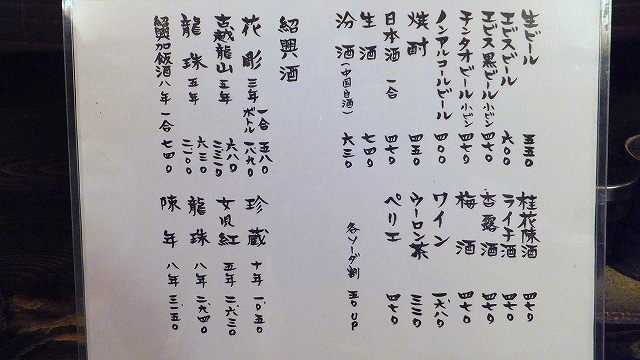 生ビール 五五〇
エビスビール 六〇〇
エビス黒ビール 小ビン 四七〇
チンタオビール 小ビン 四七〇
ノンアルコールビール 四〇〇
焼酎 四五〇
日本酒 一合 四七〇
生酒 七四〇
汾酒(中国白酒) 六三〇
桂花陳酒 四七〇
ライチ酒 四七〇
杏露酒 四七〇
梅酒 四七〇
ワイン 一、六八〇
ウーロン茶 三二〇
ペリエ 四七〇
各ソーダ割 五〇UP
紹興酒
花彫 三年 一合 五八〇
ボトル 一、八九〇
古越龍山 五年 六八〇
二、三一〇
龍珠 五年 六三〇
二、一〇〇
紹興加飯酒 八年 一合 七四〇
珍蔵 十年 一、〇五〇
女児紅 五年 二、六三〇
龍珠 八年 二、九四〇
陳年 八年 三、一五〇